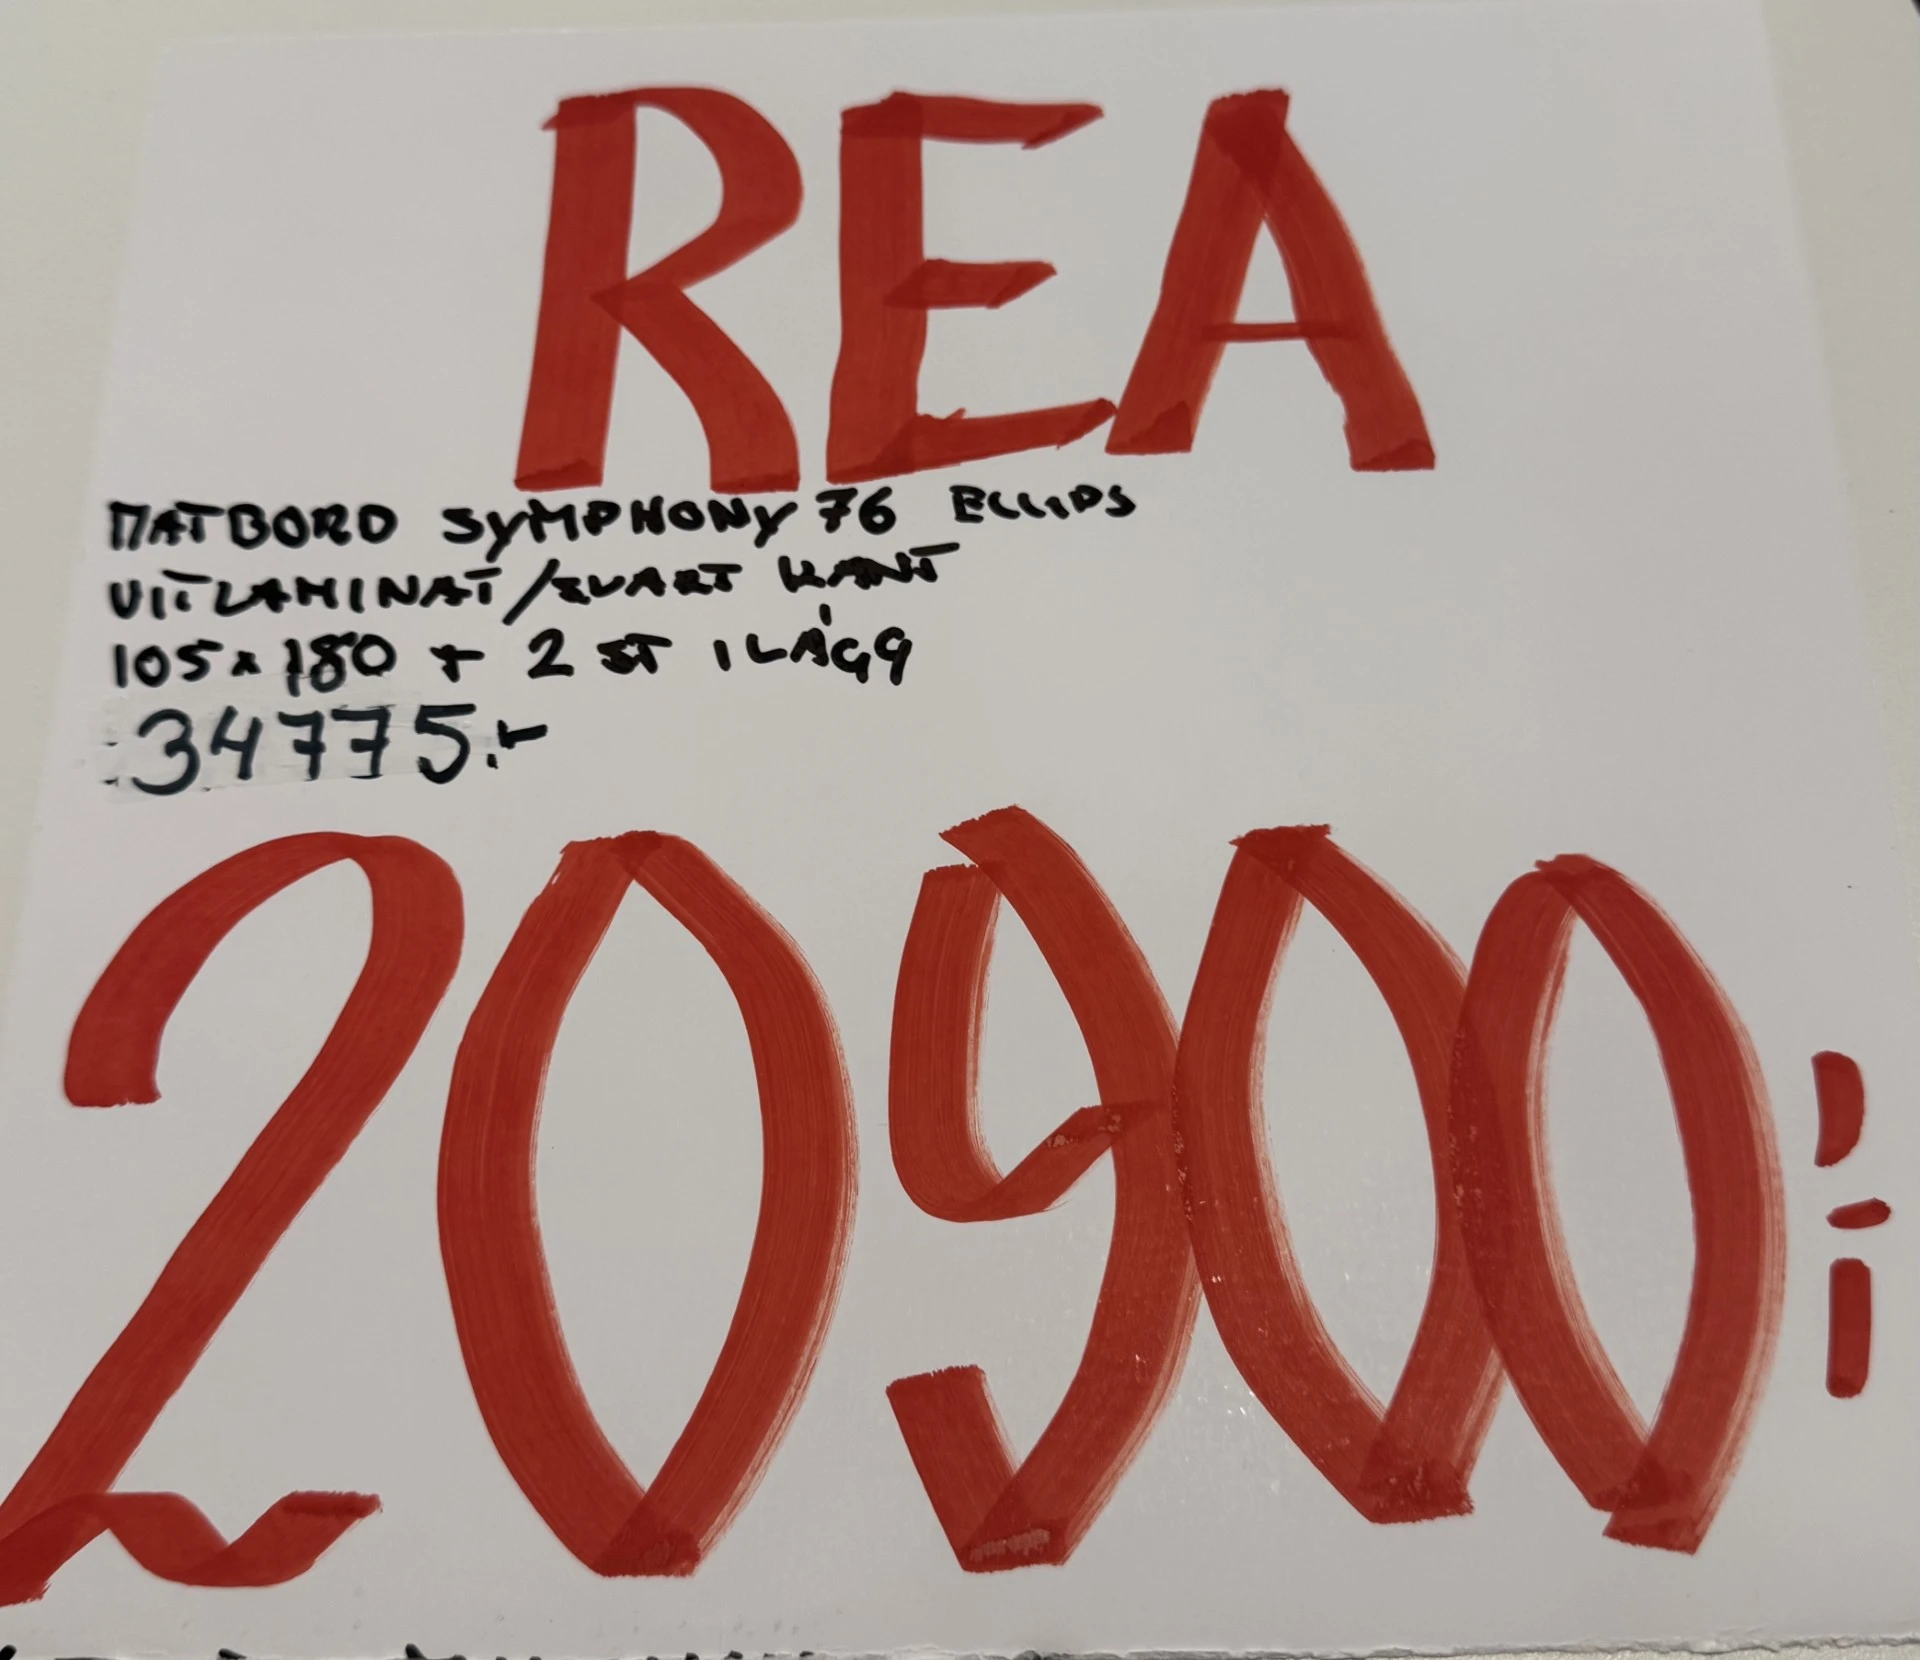 REA
MATBORD SYMPHONY 76 ELLIPS
VITLAMINAT/SVART KANT
105x180 + 2 ST ILÄGG
34775:-
20900:-